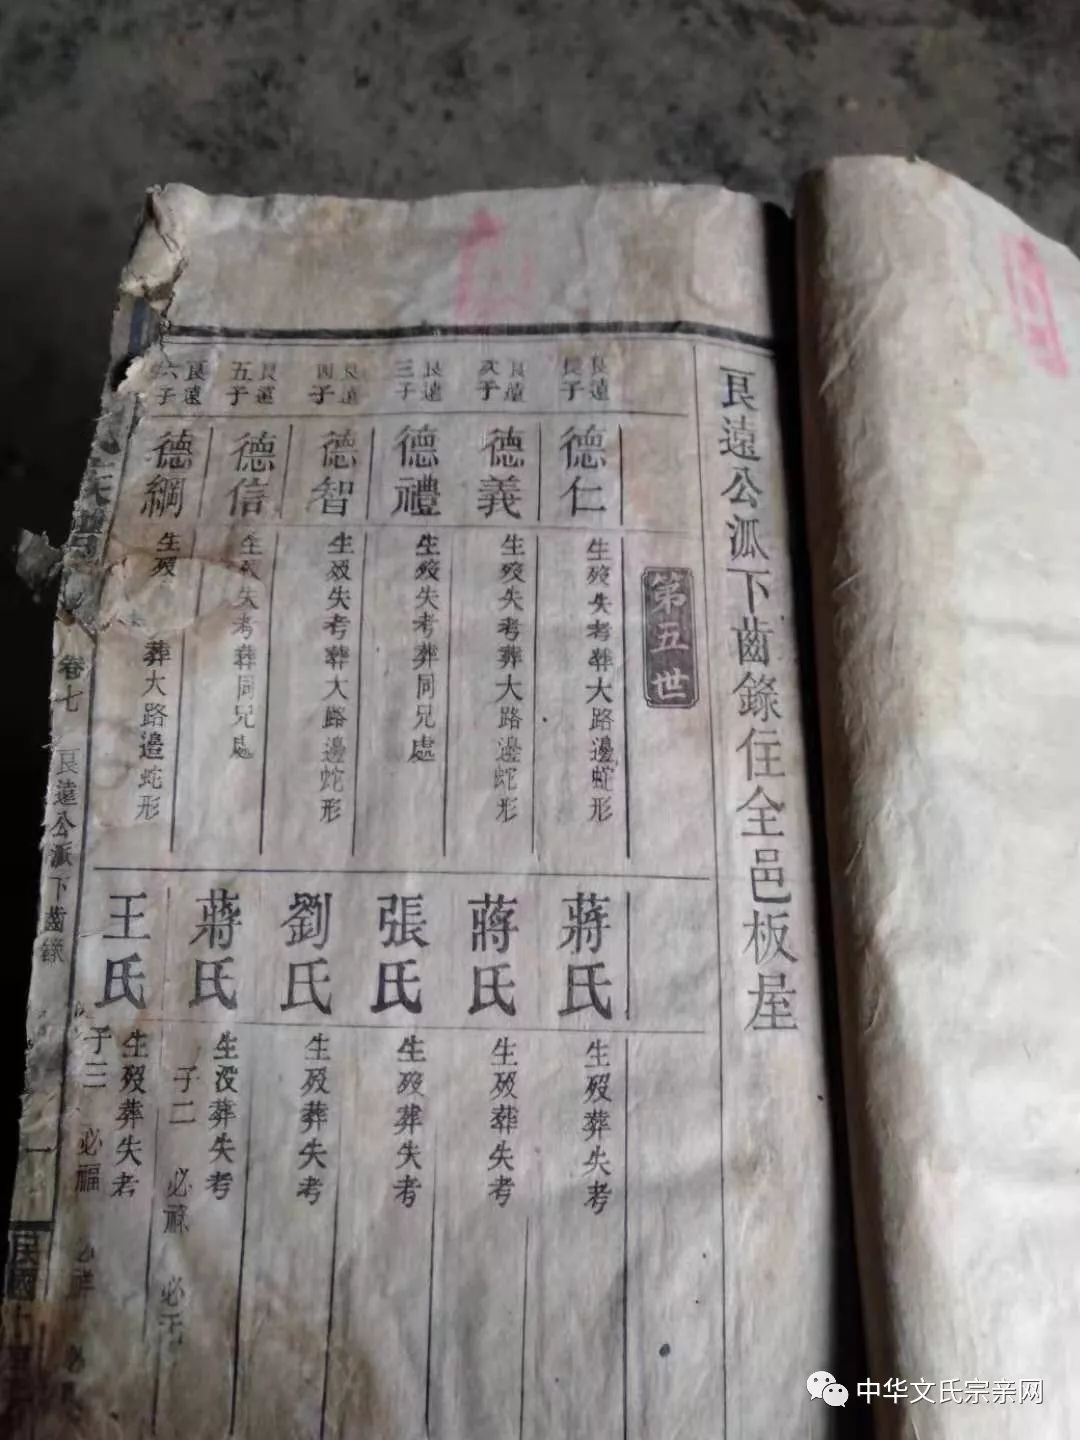 艮遠公派下齒錄住全邑板屋
第五世
艮遠長子
德仁
生殁失考葬大路邊蛇形
蔣氏
生殁葬失考
艮遠次子
德義
生殁失考葬大路邊蛇形
蔣氏
生殁葬失考
艮遠三子
德禮
生殁失考葬同兄處
張氏
生殁葬失考
艮遠四子
德智
生殁失考葬大路邊蛇形
劉氏
生殁葬失考
艮遠五子
德信
生殁失考葬同兄處
蔣氏
生沒葬失考
子二 必祿 必
艮遠六子
德綱
生殁 葬大路邊蛇形
王氏
生殁葬失考
子三 必福 祥
卷七 艮遠公派下齒錄
一
民國
中华文氏宗亲网